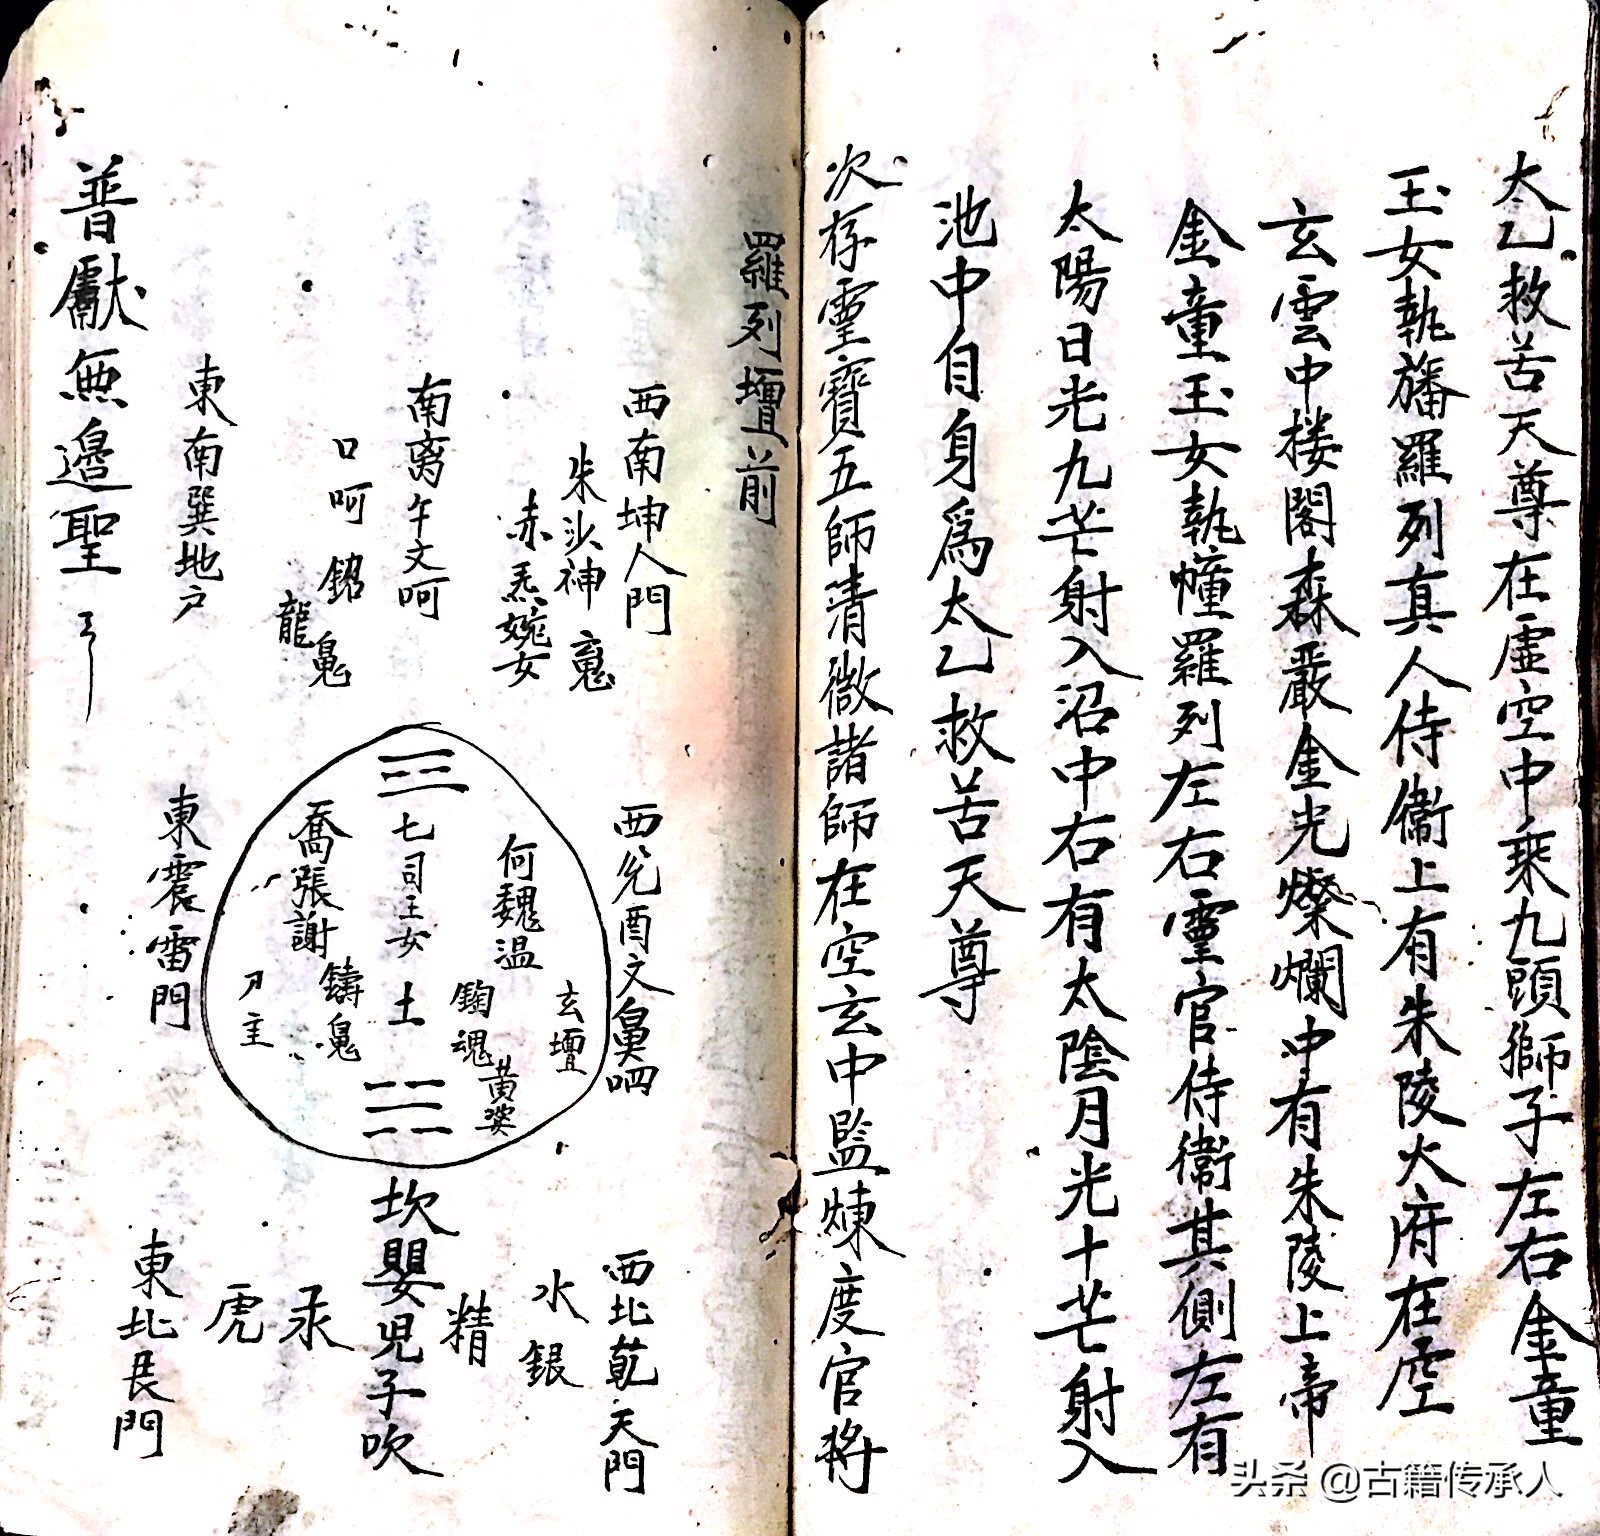 太乙救苦天尊在虛空中乘九頭獅子左右金童
玉女執旛羅列真人侍衞上有朱陵火府在空
玄雲中楼閣森嚴金光燦爛中有朱陵上帝
金童玉女執幢羅列左右靈官侍衞其側左有
太陽日光九芒射入沼中右有太陰月光十芒射入
池中自身爲太乙救苦天尊
次存靈寶五師清微諸師在空玄中監煉度官将
羅列壇前
西南坤人門
朱沙神
赤炁婉女
南离午文呵
口呵
龍
東南巽地户
西兊酉文
何魏温
玄壇
黄婆
七司王女
土
喬張謝
刀主
東震雷門
西北乾天門
水銀
精
坎嬰児子吹
汞
虎
東北艮門
普獻無邊聖
头杀 @古籍传承人